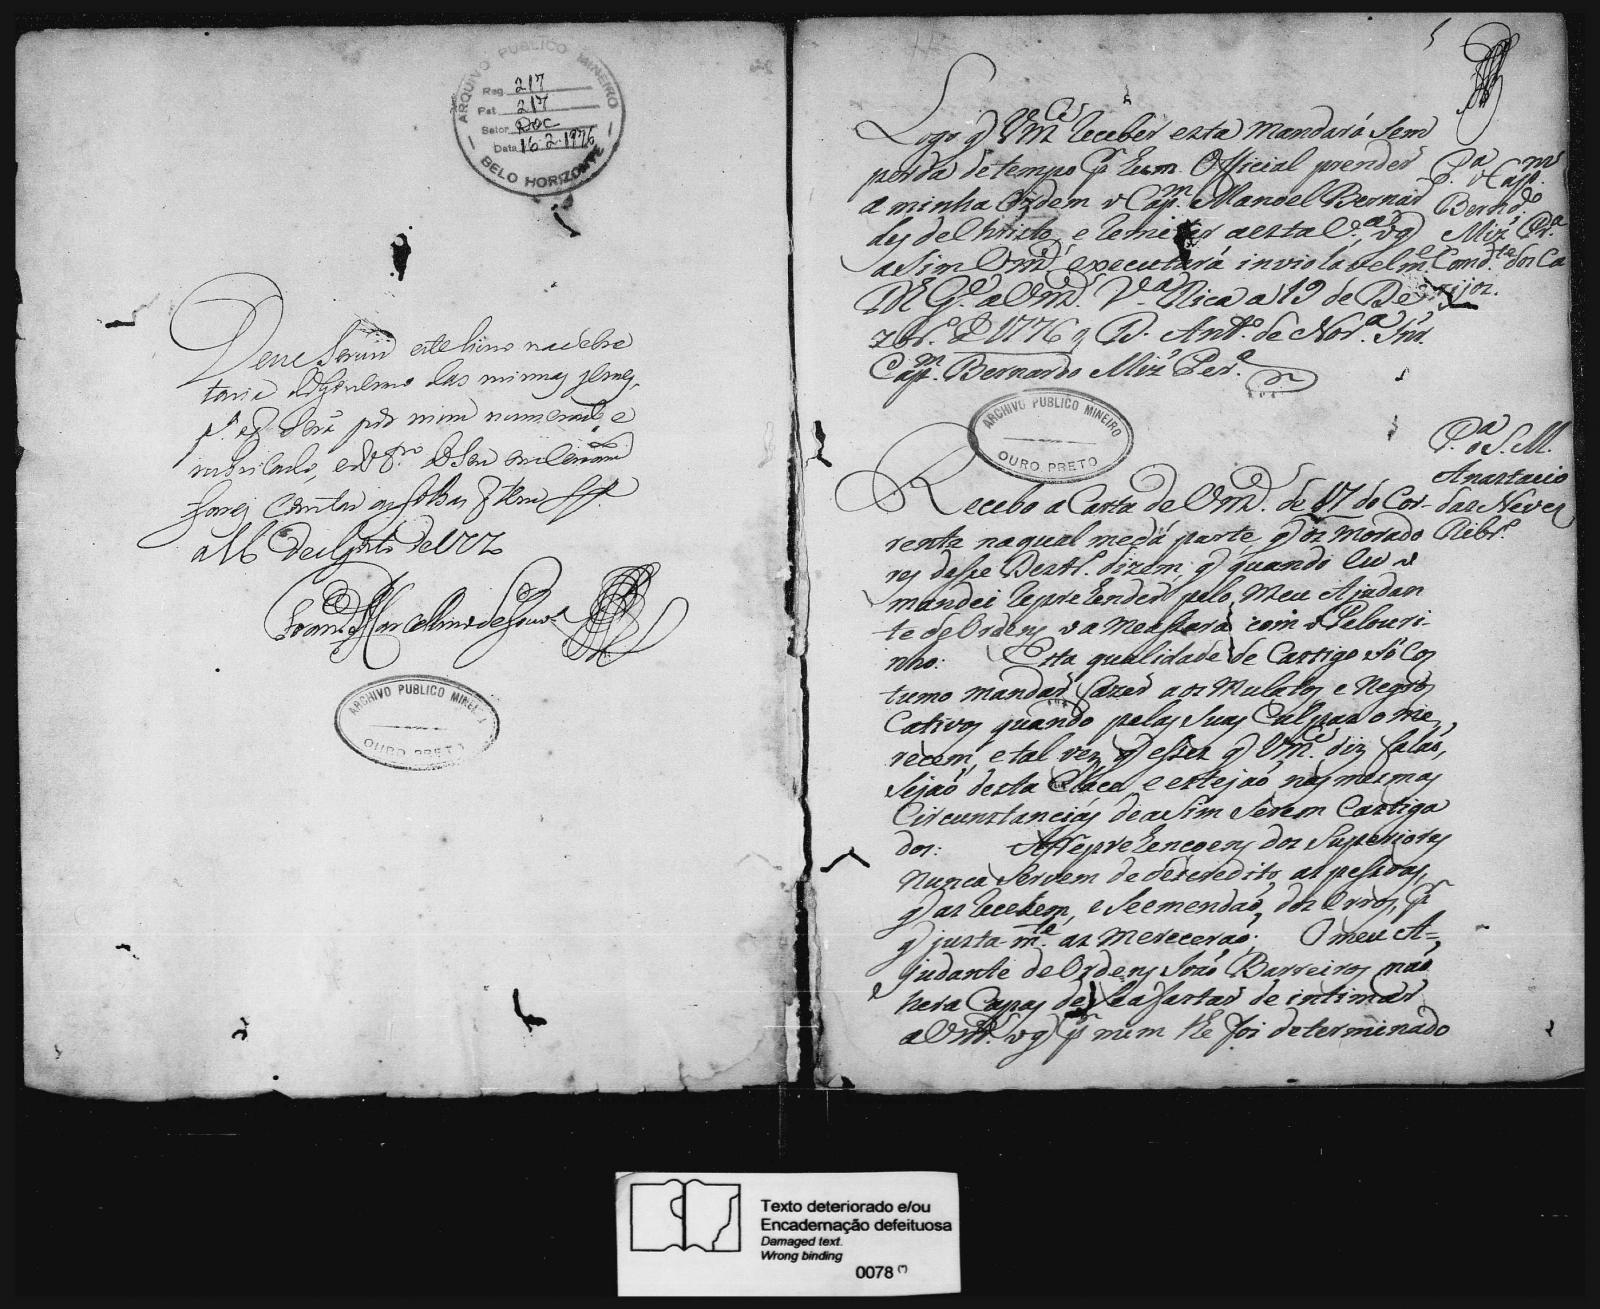 ARQUIVO PUBLICO MINEIRO
Reg. 217
Pst. 217
Setor DOC
Data 16-2-1976
BELO HORIZONTE
Deve Servir este livro na Secre
taria do Governo das minas geraes,
p.ª o q̃ Será por mim numerado, e
rubricado, e no fim
a 16 de Agosto de 177
ARCHIVO PUBLICO MINEIRO
OURO PRETO
Logo q̃ Vm.ce receber esta Mandará sem
perda de tempo p.r hum Official prender
a minha Ordem o Cap.m Manoel Bernar
des de Christo, e remeter a esta V.a, o q̃
asim Vm.ce executará inviolavelm.e
D.s G.e a Vm.ce V.a Rica a 19 de De
zbr.o de 1776 // D. Ant.o de Nor.a Snr.
Cap.m Bernardo Miz Per.a
P.a o Cap.m
Bernd.o
Miz Pr.a
Comd.te dos Ca
ijos.
ARCHIVO PUBLICO MINEIRO
OURO PRETO
P.a o S. M.
Anastacio
das Neves
Ribr.o
Recebo a Carta de Vm.ce de 17 do Cor-
rente na qual me dá parte q̃ os morado
res desse Destr.o dizem, q̃ quando eu o
mandei reprehender pelo Meu Ajudan
te de Ordens o ameassara com o Pelouri-
nho: Esta qualidade de Castigo só Cos
tumo mandar fazer aos Mulatos e Negros
Cativos quando pelas suas Culpas o me,
recem, e tal vez q̃ esses q̃ Vm.ce diz falaõ,
sejaõ desta Clace e estejaõ nas mesmas
Circunstancias de asim serem Castiga
dos: As reprehencoens dos Superiores
Nunca servem de descredito as pessoas,
q̃ as recebem, e se emendaõ dos erros, p.r
q̃ justa-m.te as mereceraõ: O meu A-
judante de Ordens Joaõ Barreiros naõ
hera Capas de se afastar de intimar
a Vm.ce o q̃ p.r mim lhe foi determinado
Texto deteriorado e/ou
Encadernação defeituosa
Damaged text.
Wrong binding
0078 (*)